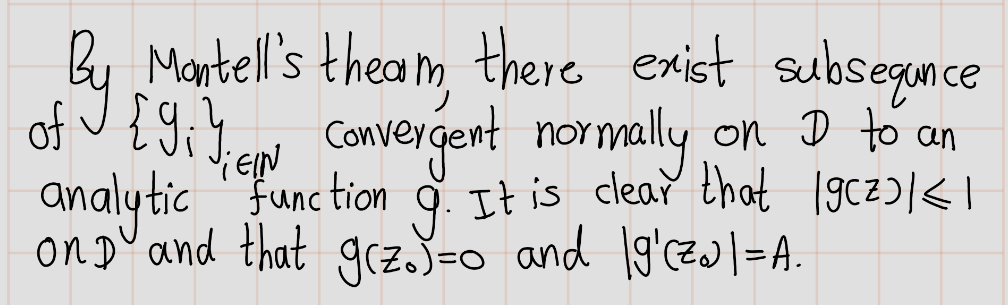 By Montell's theam, there exist subsequnce
of {g_i}_{i∈ℕ} convergent normally on D to an
analytic function g. It is clear that |g(z)|≤1
on D and that g(z₀)=0 and |g'(z₀)|=A.